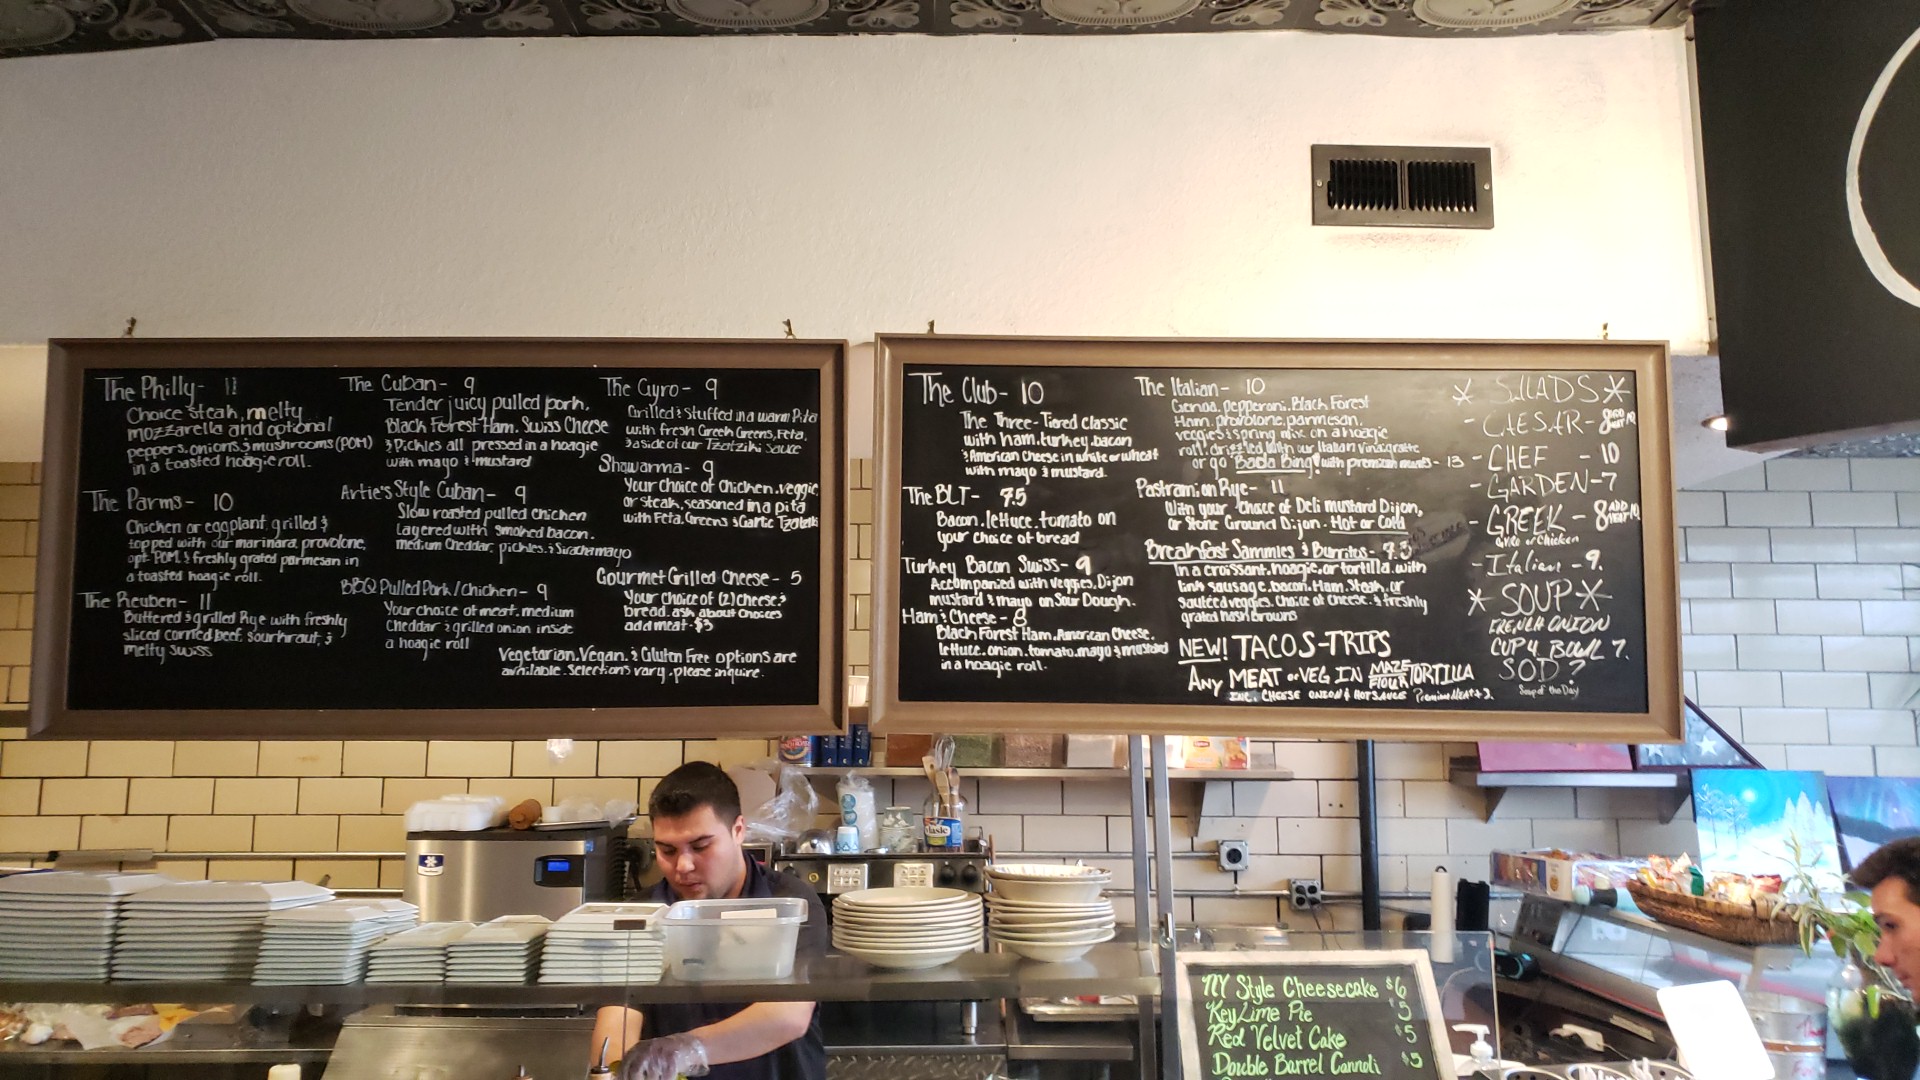 The Philly- 11
Choice steak, melty
mozzarella and optional
peppers, onions, & mushrooms (POM)
in a toasted hoagie roll.
The Parms- 10
Chicken or eggplant, grilled &
topped with our marinara, provolone,
opt. POM, & freshly grated parmesan in
a toasted hoagie roll.
The Reuben- 11
Buttered & grilled Rye with freshly
sliced corned beef, sourkraut, &
melty swiss
The Cuban- 9
Tender juicy pulled pork,
Black Forest Ham, Swiss Cheese
& Pickles all pressed in a hoagie
with mayo & mustard
Artie's Style Cuban- 9
Slow roasted pulled chicken
layered with smoked bacon,
medium Cheddar, pickles, & Siracha mayo
BBQ Pulled Pork/Chicken- 9
Your choice of meat, medium
Cheddar & grilled onion inside
a hoagie roll
The Gyro- 9
Grilled & Stuffed in a warm Pita
with fresh Greek Greens, Feta,
& a side of our Tzatziki Sauce
Shawarma- 9
Your choice of chicken, veggie,
or steak, seasoned in a pita
with Feta, Greens & Garlic Tzatziki
Gourmet Grilled Cheese- 5
Your choice of (2) cheese, &
bread. ask about choices
add meat-$3
Vegetarian, Vegan, & Gluten Free options are
available. Selections vary, please inquire.
The Club- 10
The Three-Tiered classic
with ham, turkey, bacon
& American Cheese in white or wheat
with mayo & mustard.
The BLT- 7.5
Bacon, lettuce, tomato on
your choice of bread
Turkey Bacon Swiss- 9
Accompanied with veggies, Dijon
mustard & mayo on Sour Dough.
Ham & Cheese- 8
Black Forest Ham, American Cheese,
lettuce, onion, tomato, mayo & mustard
in a hoagie roll.
The Italian- 10
Genoa, pepperoni, Black Forest
Ham, provolone, parmesan,
veggies & spring mix on a hoagie
roll, drizzled with our Italian vinaigrette
or go "Bada Bing!" with premium meats- 13
Pastrami on Rye- 11
With your choice of Deli mustard Dijon,
or Stone Ground Dijon. Hot or Cold
Breakfast Sammies & Burritos-
In a croissant, hoagie, or tortilla, with
link sausage, bacon, Ham, Steak, or
sauteed veggies, choice of cheese, & freshly
grated hash browns
NEW! TACOS-TRIPS
ANY MEAT or VEG IN MAZE FLOUR TORTILLA
INC. CHEESE ONION & HOT SAUCE Premium Meat + 2.
* SALADS *
- CAESAR- 8
- CHEF - 10
- GARDEN-7
- GREEK - 8 ADD MEAT
GYRO or Chicken
- Italian - 9.
* SOUP *
FRENCH ONION
CUP 4. BOWL 7.
SOD?
Soup of the Day
NY Style Cheesecake $6
Key Lime Pie $5
Red Velvet Cake $5
Double Barrel Cannoli $5